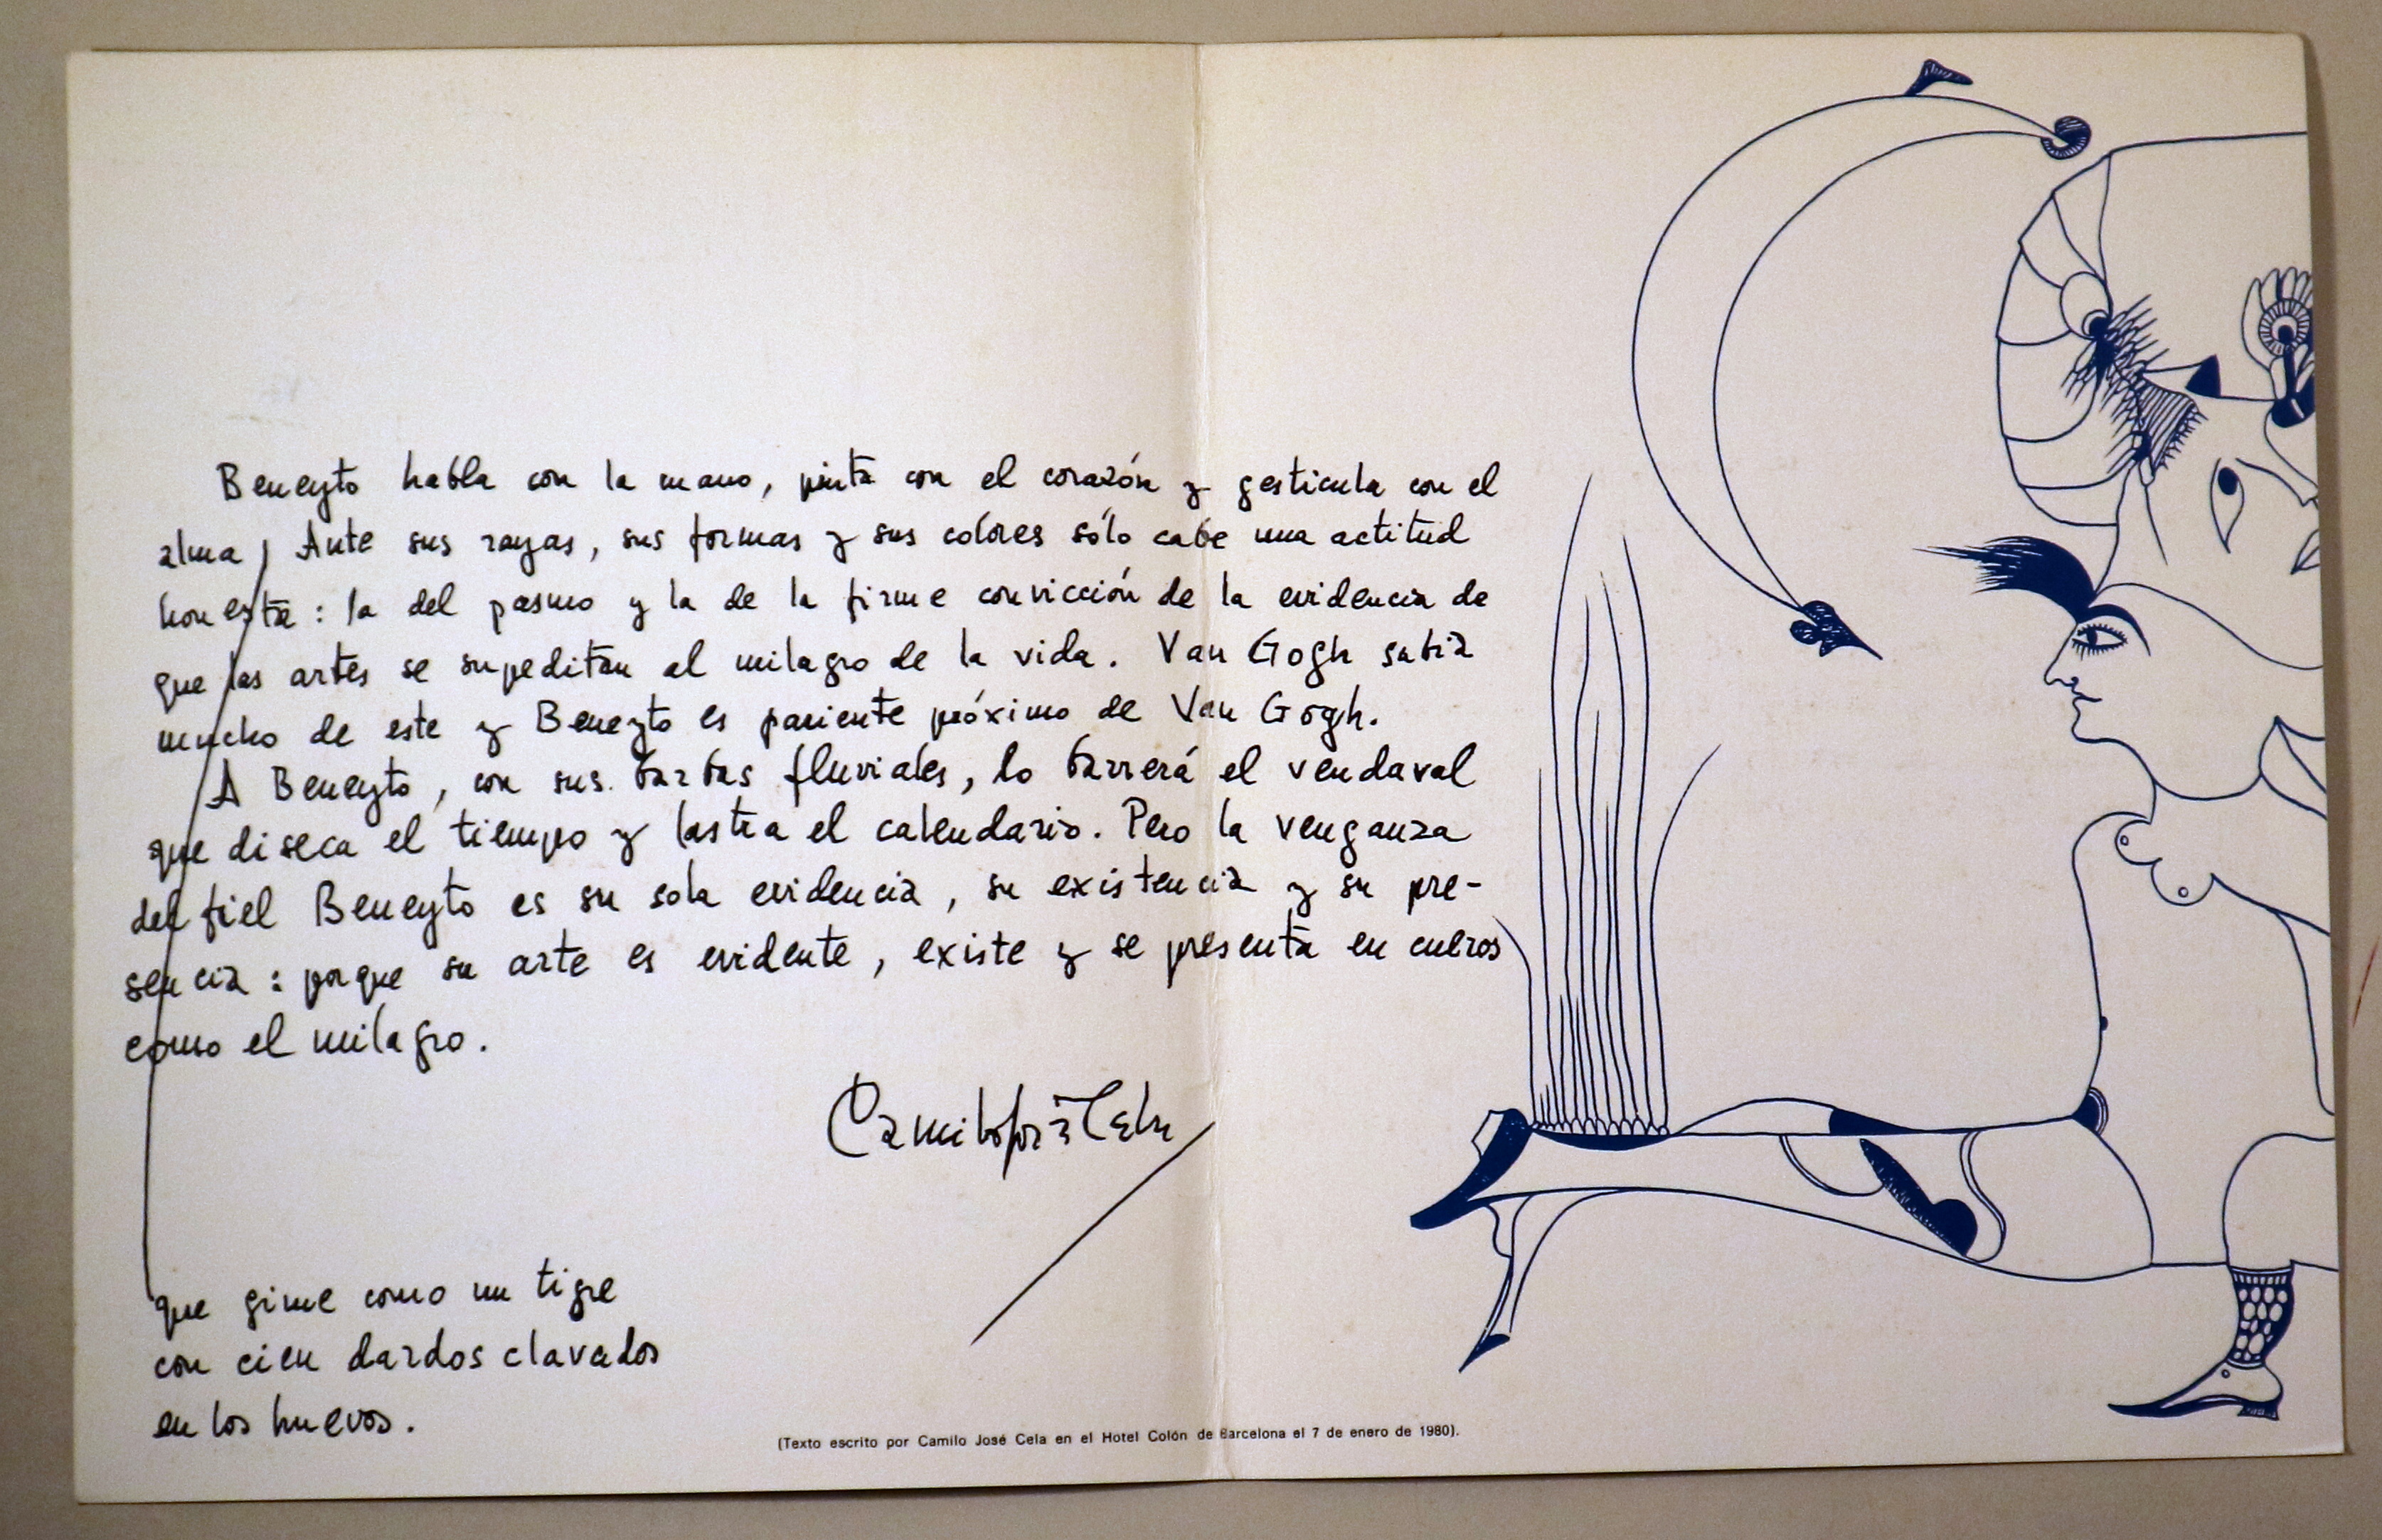 Beneyto habla con la mano, pinta con el corazón y gesticula con el
alma Ante sus rayas, sus formas y sus colores sólo cabe una actitud
honesta: la del pasmo y la de la firme convicción de la evidencia de
que las artes se supeditan al milagro de la vida. Van Gogh sabía
mucho de este y Beneyto es pariente próximo de Van Gogh.
A Beneyto, con sus barbas fluviales, lo barrerá el vendaval
que diseca el tiempo y lastra el calendario. Pero la venganza
del fiel Beneyto es su sola evidencia, su existencia y su pre-
sencia: porque su arte es evidente, existe y se presenta en cueros
como el milagro.
Camilo José Cela
que gime como un tigre
con cien dardos clavados
en los huevos.
(Texto escrito por Camilo José Cela en el Hotel Colón de Barcelona el 7 de enero de 1980).